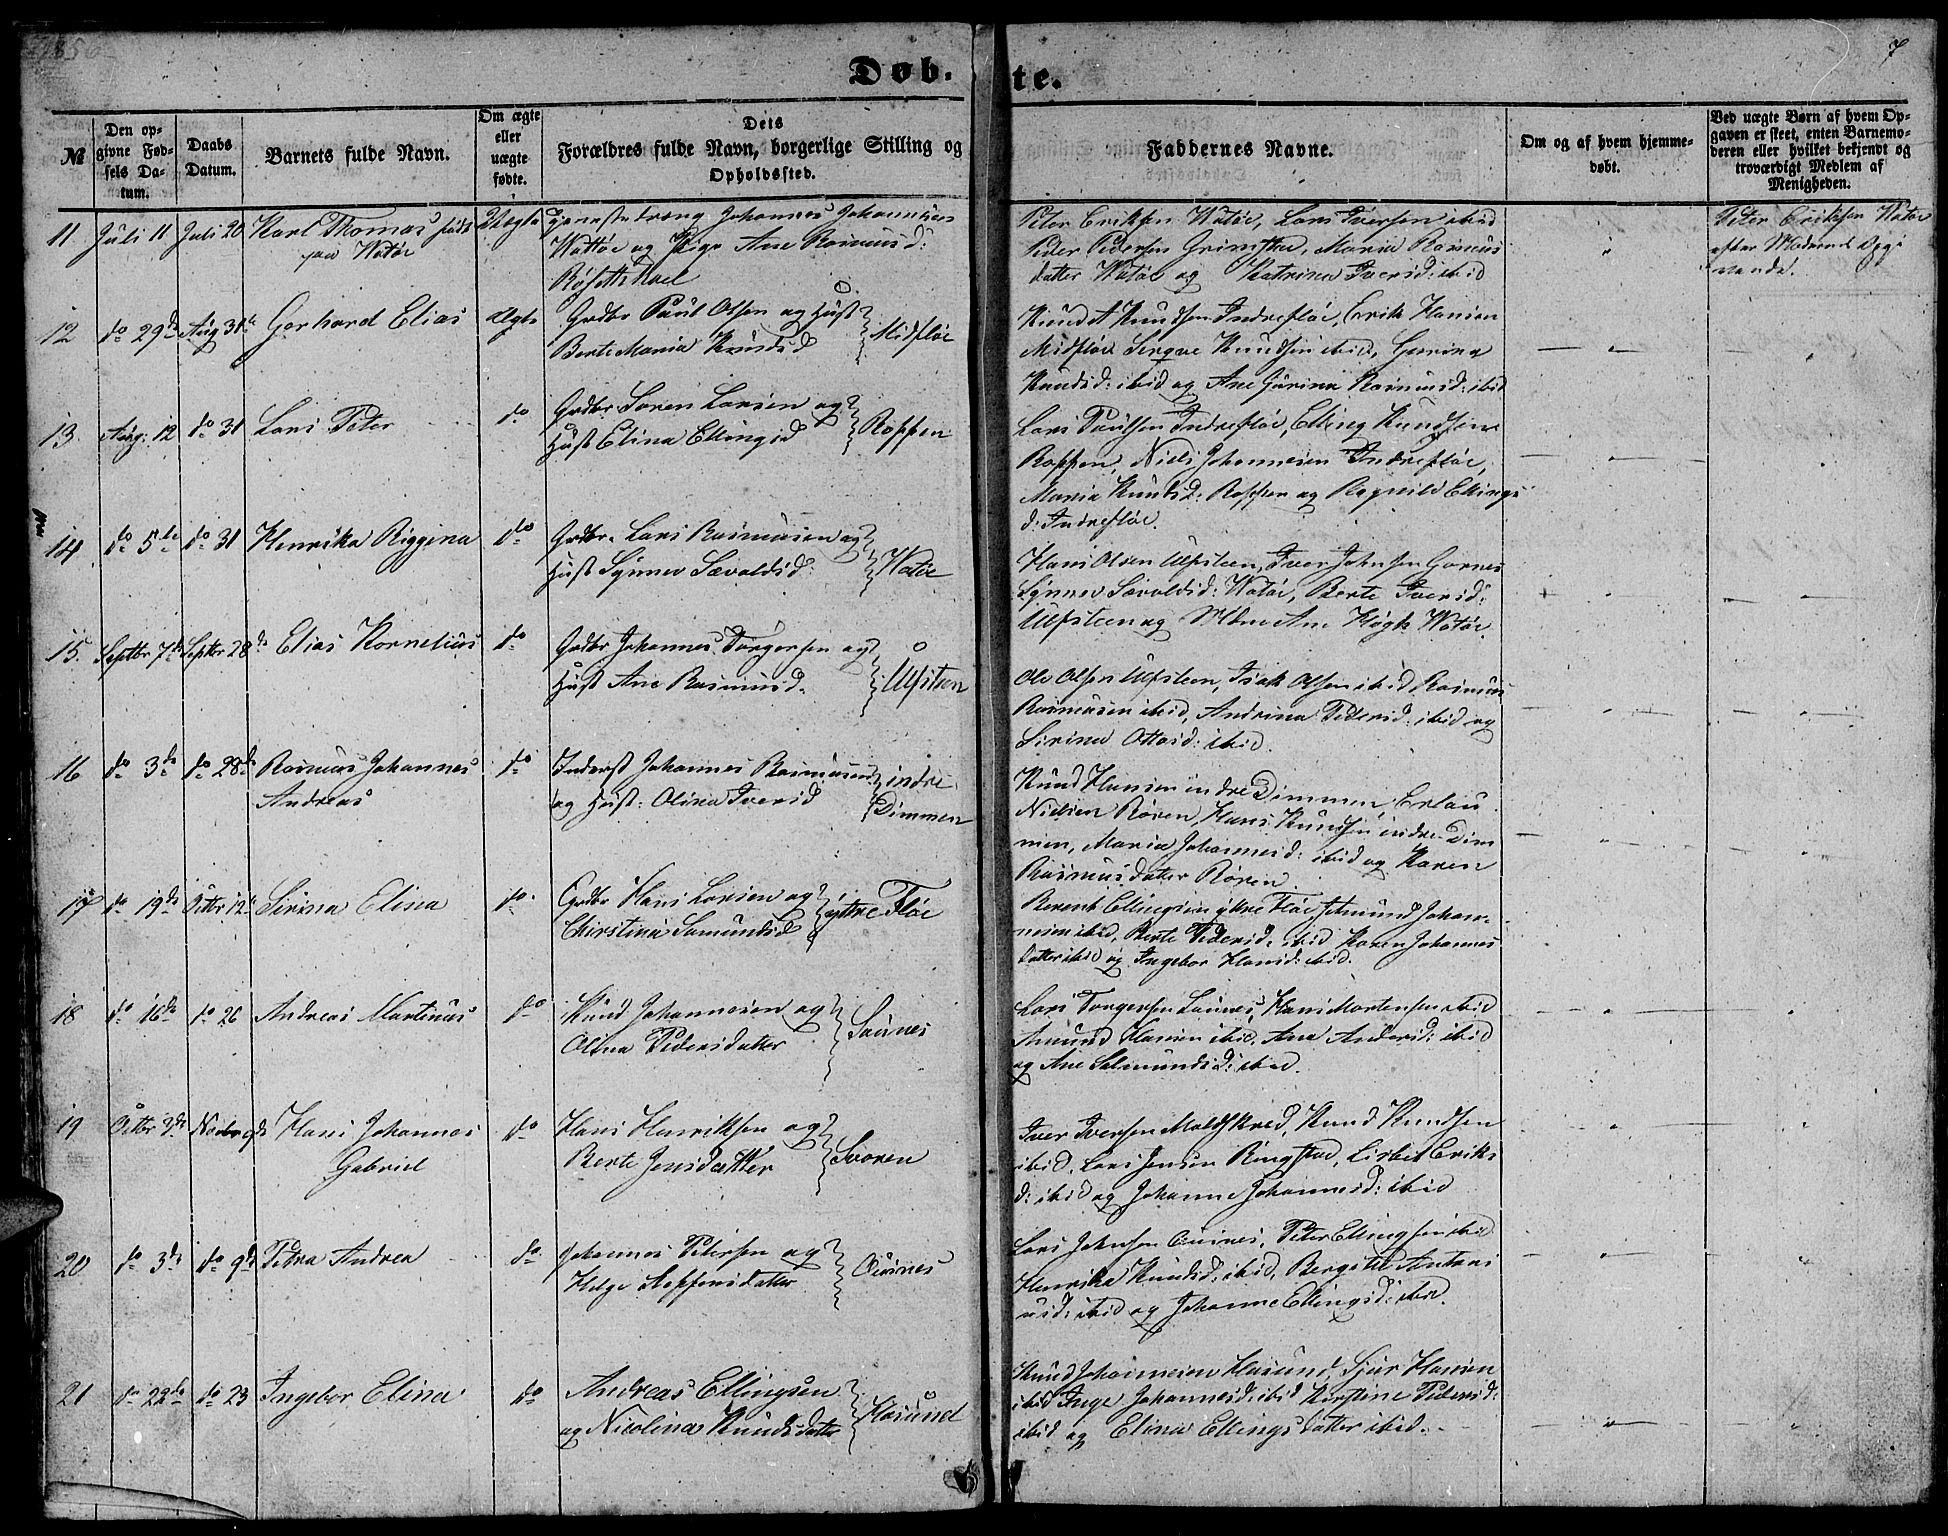 1856
7
Døb. te.
№
Den opgivne Fødsels Datum.
Daabs Datum.
Barnets fulde Navn.
Om ægte eller uægte fødte.
Dets Forældres fulde Navn, borgerlige Stilling og Opholdssted.
Faddernes Navne.
Om og af hvem hjemmedøbt.
Ved uægte Børn af hvem Opgaven er skeet, enten Barnemoderen eller hvilket bekjendt og troværdigt Medlem af Menigheden.
11. Juli 11 Juli 20 Karl Thomas født Uægte Tjenestedreng Johannes Johannesen
paa Watøe Wattøe og Pige Ane Rasmusd:
Peter Eriksen Watøe, Lars Iversen ibid
Peder Pedersen, Maria Rasmus
datter Watøe og Katrina Iversd: ibid
Peter Eriksen Watøe
efter Moderens Opgi
vende.
12 do 29de Aug 31te Gerhard Elias Ægte Grdbr Paul Olsen og Hust
Berte Maria Knudsd Midfløe
Knud A Knudsen Indrefløe, Erik Hansen
Midfløe Knudsen ibid,
Knudsd: ibid og Ane Gurina Rasmusd: ibid
13. Aug: 12 do 31 Lars Peter do Grdbr Søren Larsen og
Hust Elina Ellingsd Roppen
Lars Paulsen Indrefløe, Elling Knudsen
Roppen, Niels Johannesen Indrefløe,
Maria Knudsd: Roppen og Ragnild Ellings
d: Indrefløe.
14 do 5te do 31 Henrika Riggina do Grdbr. Lars Rasmusen og
Hust Synnev Sævaldsd: Watøe
Hans Olsen Ulfsteen, Iver Johnsen Garnes
Synnev Sævaldsd: Watøe, Berte Iversd:
Ulfsteen og Mdme Ane Høgh Watøe.
15. Septbr. 7de Septbr 28de Elias Kornelius do Grdbr Johannes Torgersen og
Hust Ane Rasmusd. Ulfsteen
Ole Olsen Ulfsteen, Isak Olsen ibid Rasmus
Rasmusen ibid, Andrina Pedersd: ibid og
Sirina Ottosd: ibid.
16 do 3de do 28de Rasmus Johannes do Inderst Johannes Rasmusen indre
Andreas og Hust: Olina Iversd Dimmen
Knud Hansen indre Dimmen, Erland
Nielsen Røren, Hans Knudsen indre Dim
men, Maria Johannesd: ibid og Karen
Rasmusdatter Røren.
17 do 19de Octbr 12te Sirina Elina do. Grdbr Hans Larsen og
Christina Samundsd yttre Fløe
Berent Ellingsen yttre Fløe, Johan-
nesen ibid, Berte Pedersd: ibid Karen Johannes
datter ibid og Ingebor Hansd: ibid.
18 do 16de do 26 Andreas Martinus do Knud Johannesen og
Olina Pedersdatter Saunes
Lars Torgersen Saunes, Hans Mortensen ibid
Amund Hansen ibid, Ane Andersd: ibid
og Ane Salmundsd: ibid.
19 Octbr 3de Novbr 9de Hans Johannes do Hans Henriksen og
Gabriel Berte Jensdatter Svoren
Iver Iversen Maldskred, Knud Knudsen
ibid, Lars Jensen Ringstad, Lisbet Eriks
d: ibid og Johanne Johannesd: ibid
20 do 3de do 9de Petra Andrea do Johannes Petersen og
Helge Steffensdatter Osnes
Lars Johnsen Osnes, Peter Ellingsen ibid
Henrika Knudsd: ibid, Bergitte Antoni
usd: ibid og Johanne Ellingsd: ibid.
21 do 22de do 23 Ingebor Elina do Andreas Ellingsen
og Nicolina Knudsdatter Hasund
Knud Johannesen Hasund, Sjur Hansen
ibid Inge Johannesd: ibid Kirstine Pedersd:
ibid og Elina Ellingsdatter ibid.